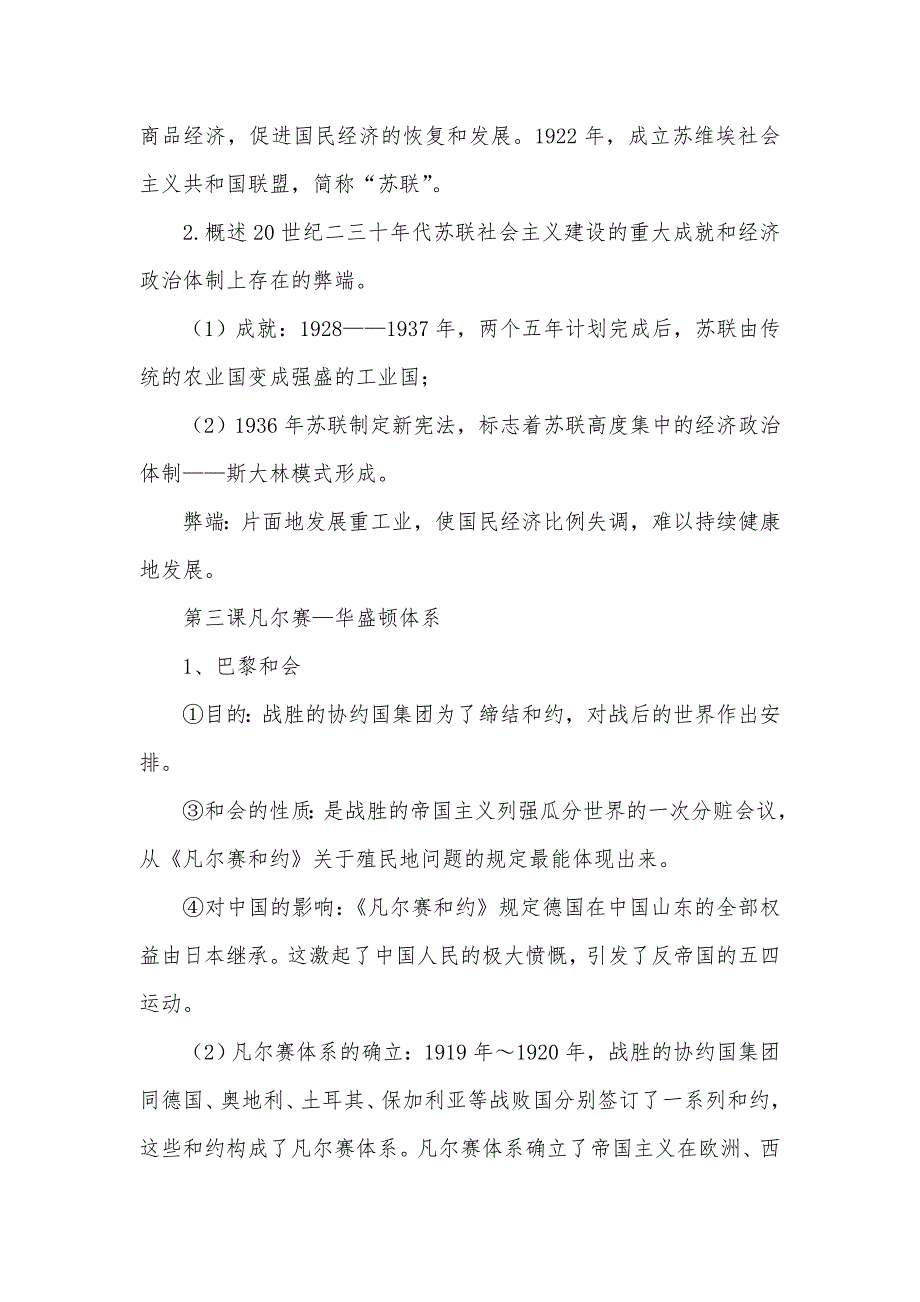 商品经济，促进国民经济的恢复和发展。1922 年，成立苏维埃社会
主义共和国联盟，简称“苏联”。
2.概述 20 世纪二三十年代苏联社会主义建设的重大成就和经济
政治体制上存在的弊端。
（1）成就：1928——1937 年，两个五年计划完成后，苏联由传
统的农业国变成强盛的工业国；
（2）1936 年苏联制定新宪法，标志着苏联高度集中的经济政治
体制——斯大林模式形成。
弊端：片面地发展重工业，使国民经济比例失调，难以持续健康
地发展。
第三课凡尔赛—华盛顿体系
1、巴黎和会
①目的：战胜的协约国集团为了缔结和约，对战后的世界作出安
排。
③和会的性质：是战胜的帝国主义列强瓜分世界的一次分赃会议，
从《凡尔赛和约》关于殖民地问题的规定最能体现出来。
④对中国的影响：《凡尔赛和约》规定德国在中国山东的全部权
益由日本继承。这激起了中国人民的极大愤慨，引发了反帝国的五四
运动。
（2）凡尔赛体系的确立：1919 年～1920 年，战胜的协约国集团
同德国、奥地利、土耳其、保加利亚等战败国分别签订了一系列和约，
这些和约构成了凡尔赛体系。凡尔赛体系确立了帝国主义在欧洲、西